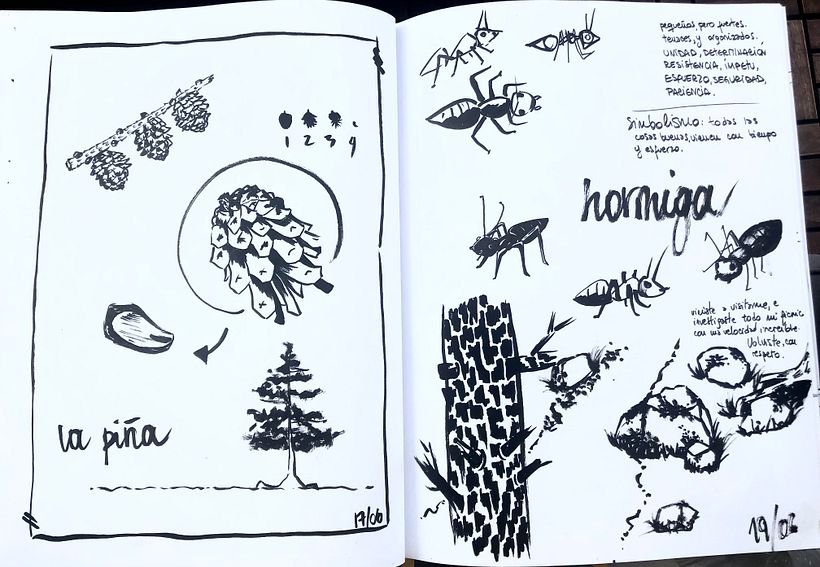 1 2 3 4
la piña
17/06
pequeñas, pero fuertes.
tenaces, y organizados.
UNIDAD, DETERMINACIÓN
RESISTENCIA, ÍMPETU,
ESFUERZO, SEGURIDAD,
PACIENCIA.
Simbolismo: todas las
cosas buenas, vienen con tiempo
y esfuerzo.
hormiga
viniste a visitarme, e
investigaste todo mi picnic
con una velocidad increíble.
Volviste, con
respeto.
19/06